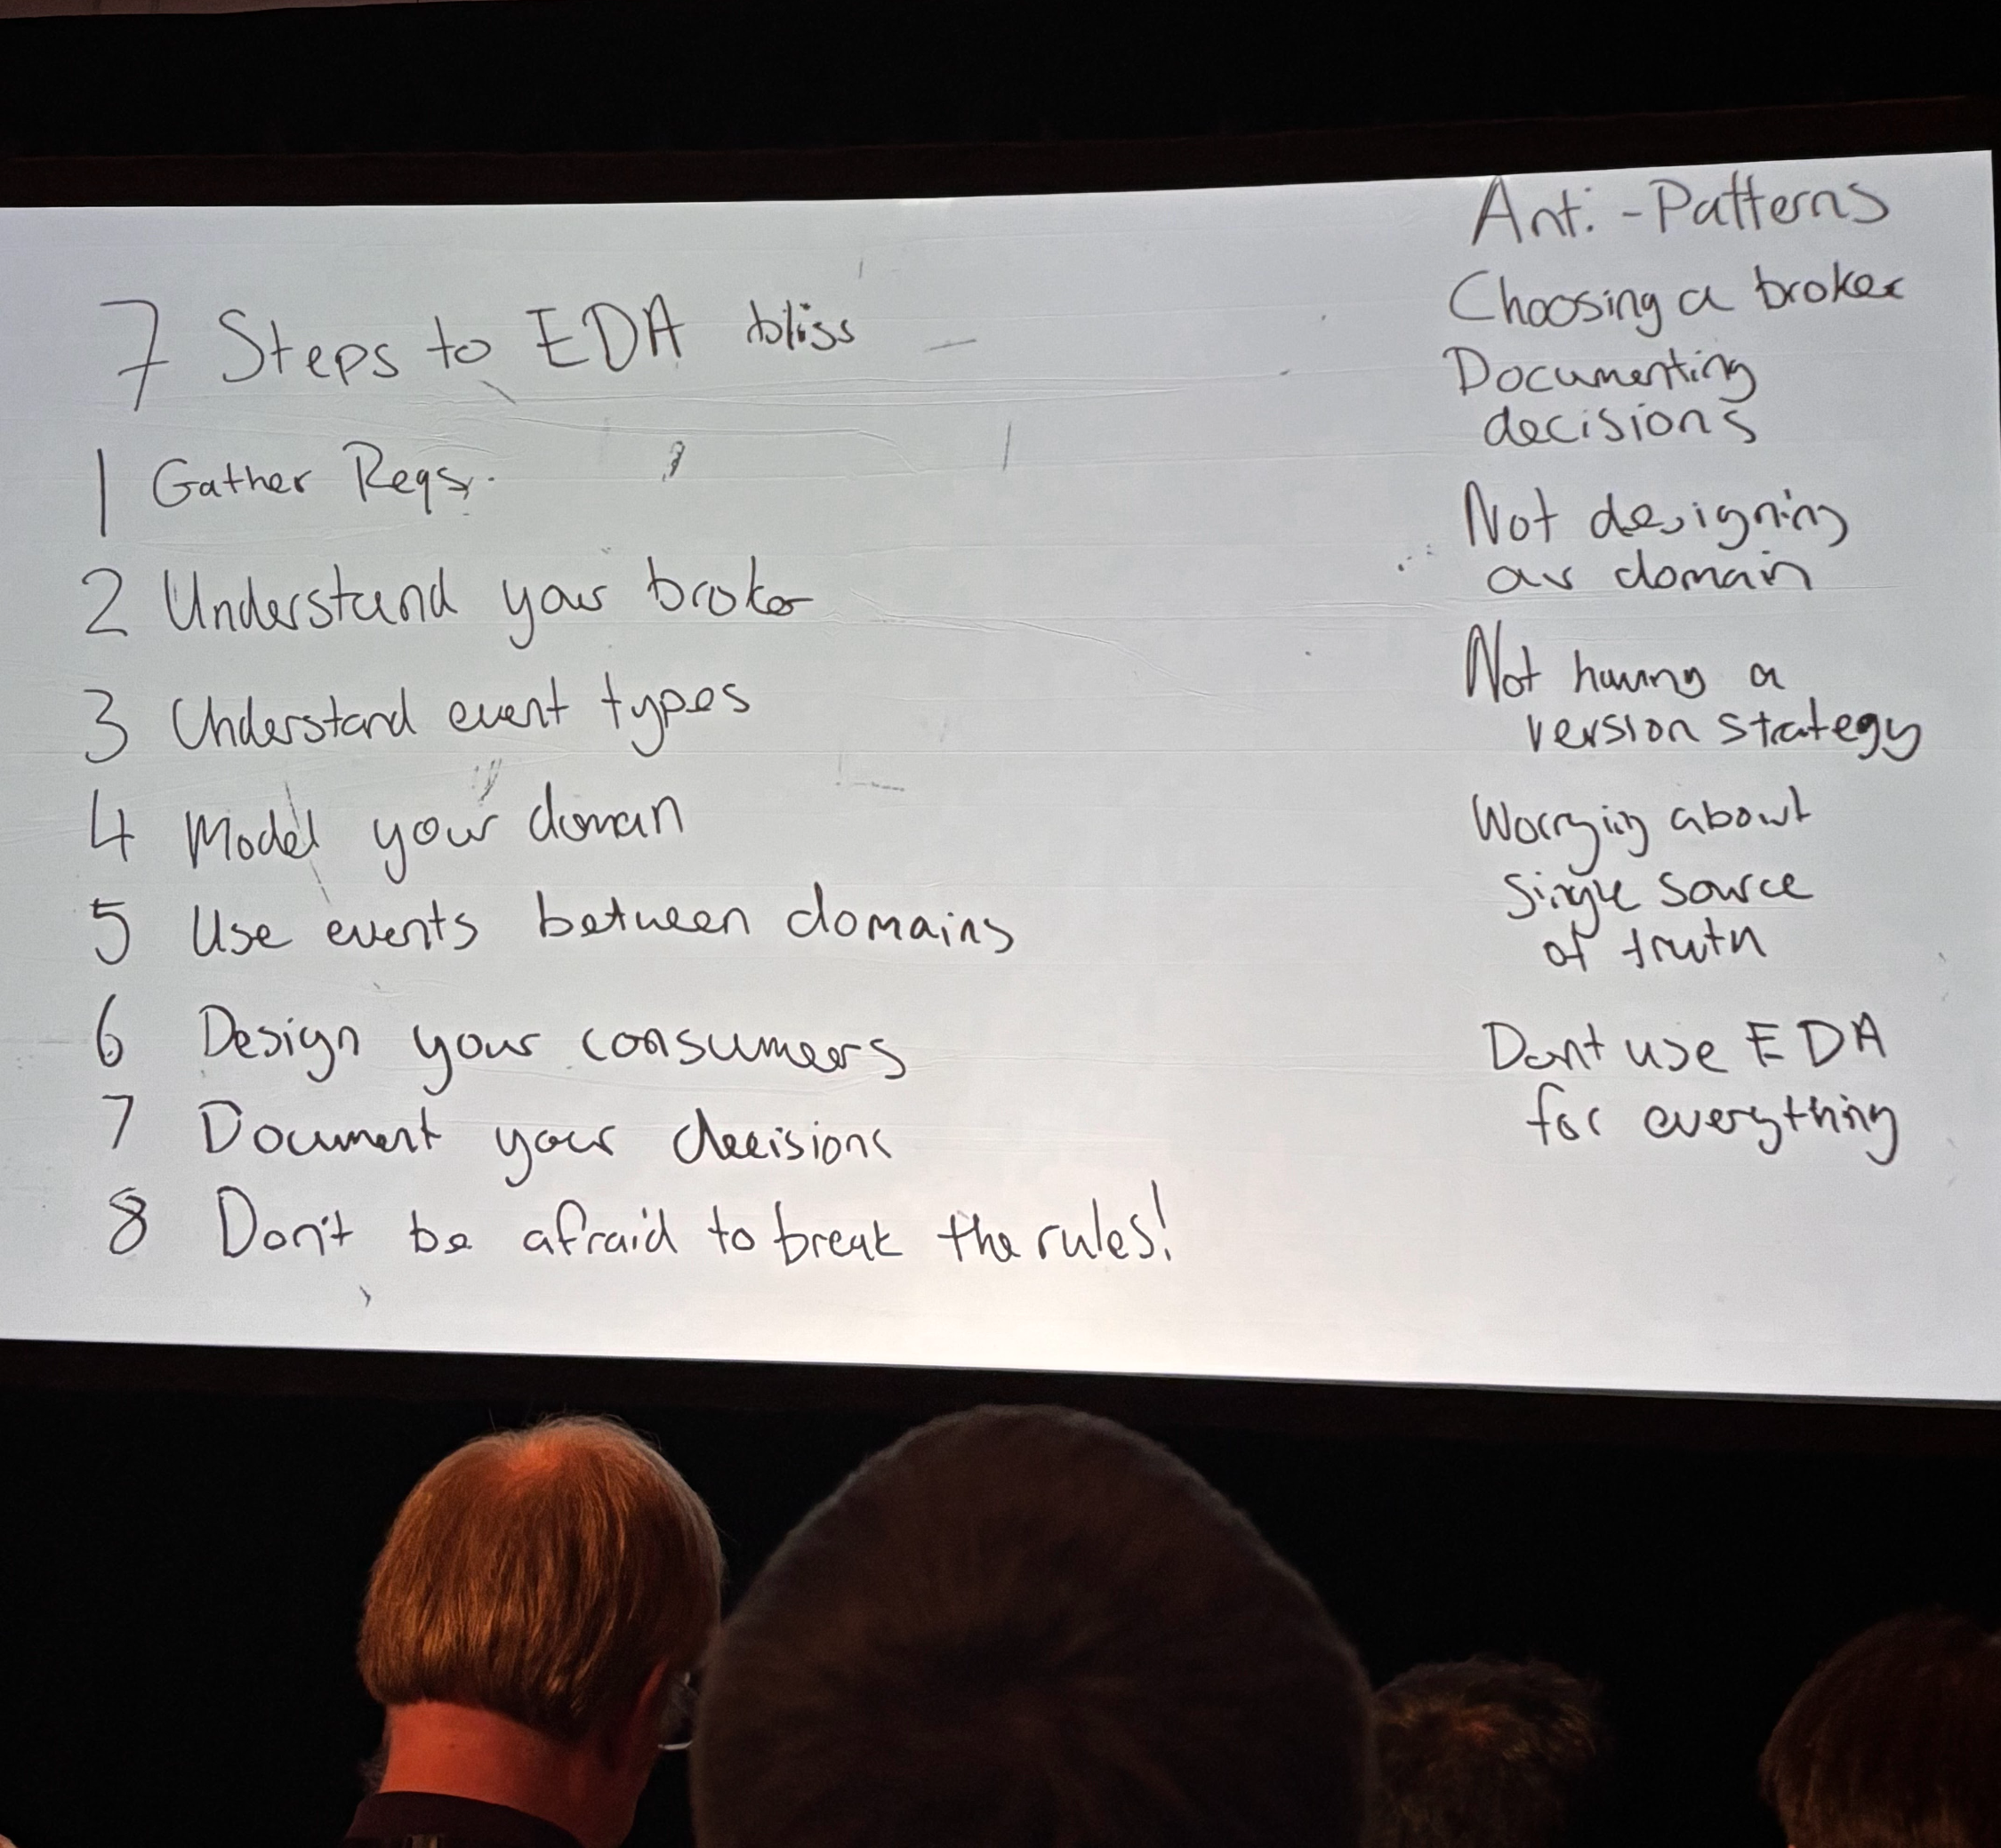 7 Steps to EDA bliss
1 Gather Reqs.
2 Understand your broker
3 Understand event types
4 Model your domain
5 Use events between domains
6 Design your consumers
7 Document your decisions
8 Don't be afraid to break the rules!
Anti-Patterns
Choosing a broker
Documenting
decisions
Not designing
our domain
Not having a
version strategy
Worrying about
single source
of truth
Dont use EDA
for everything